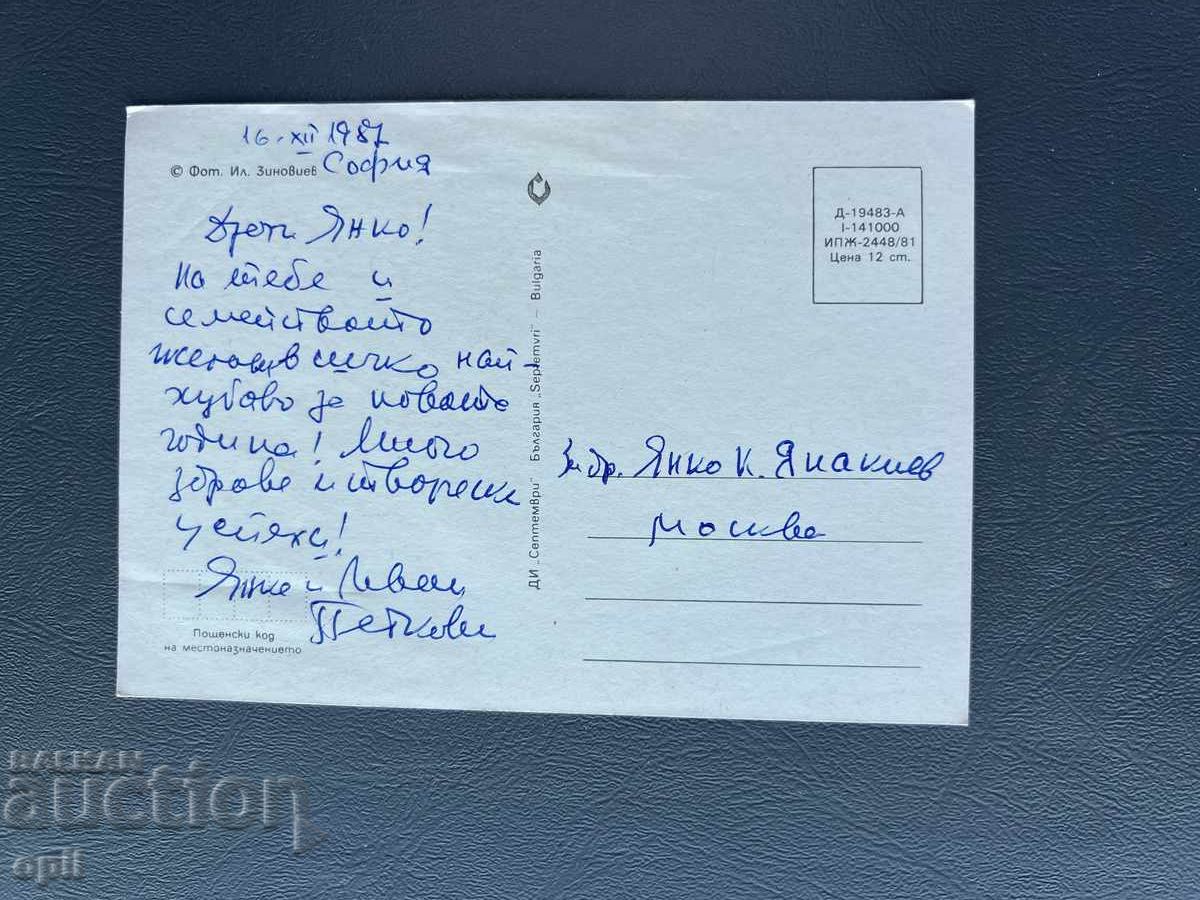 16.XII 1987
София
© Фот. Ил. Зиновиев
Драги Янко!
На тебе и
семейството
желаем всичко най-
хубаво за новата
година! Много
здраве и творчески
успехи!
Янка и Иван
Петкови
Пощенски код
на местоназначението
ДИ „Септември" България „Septemvri" – Bulgaria
Д-19483-А
I-141000
ИПЖ-2448/81
Цена 12 ст.
За др. Янко К. Янакиев
Москва
BALKAN
auction
opil